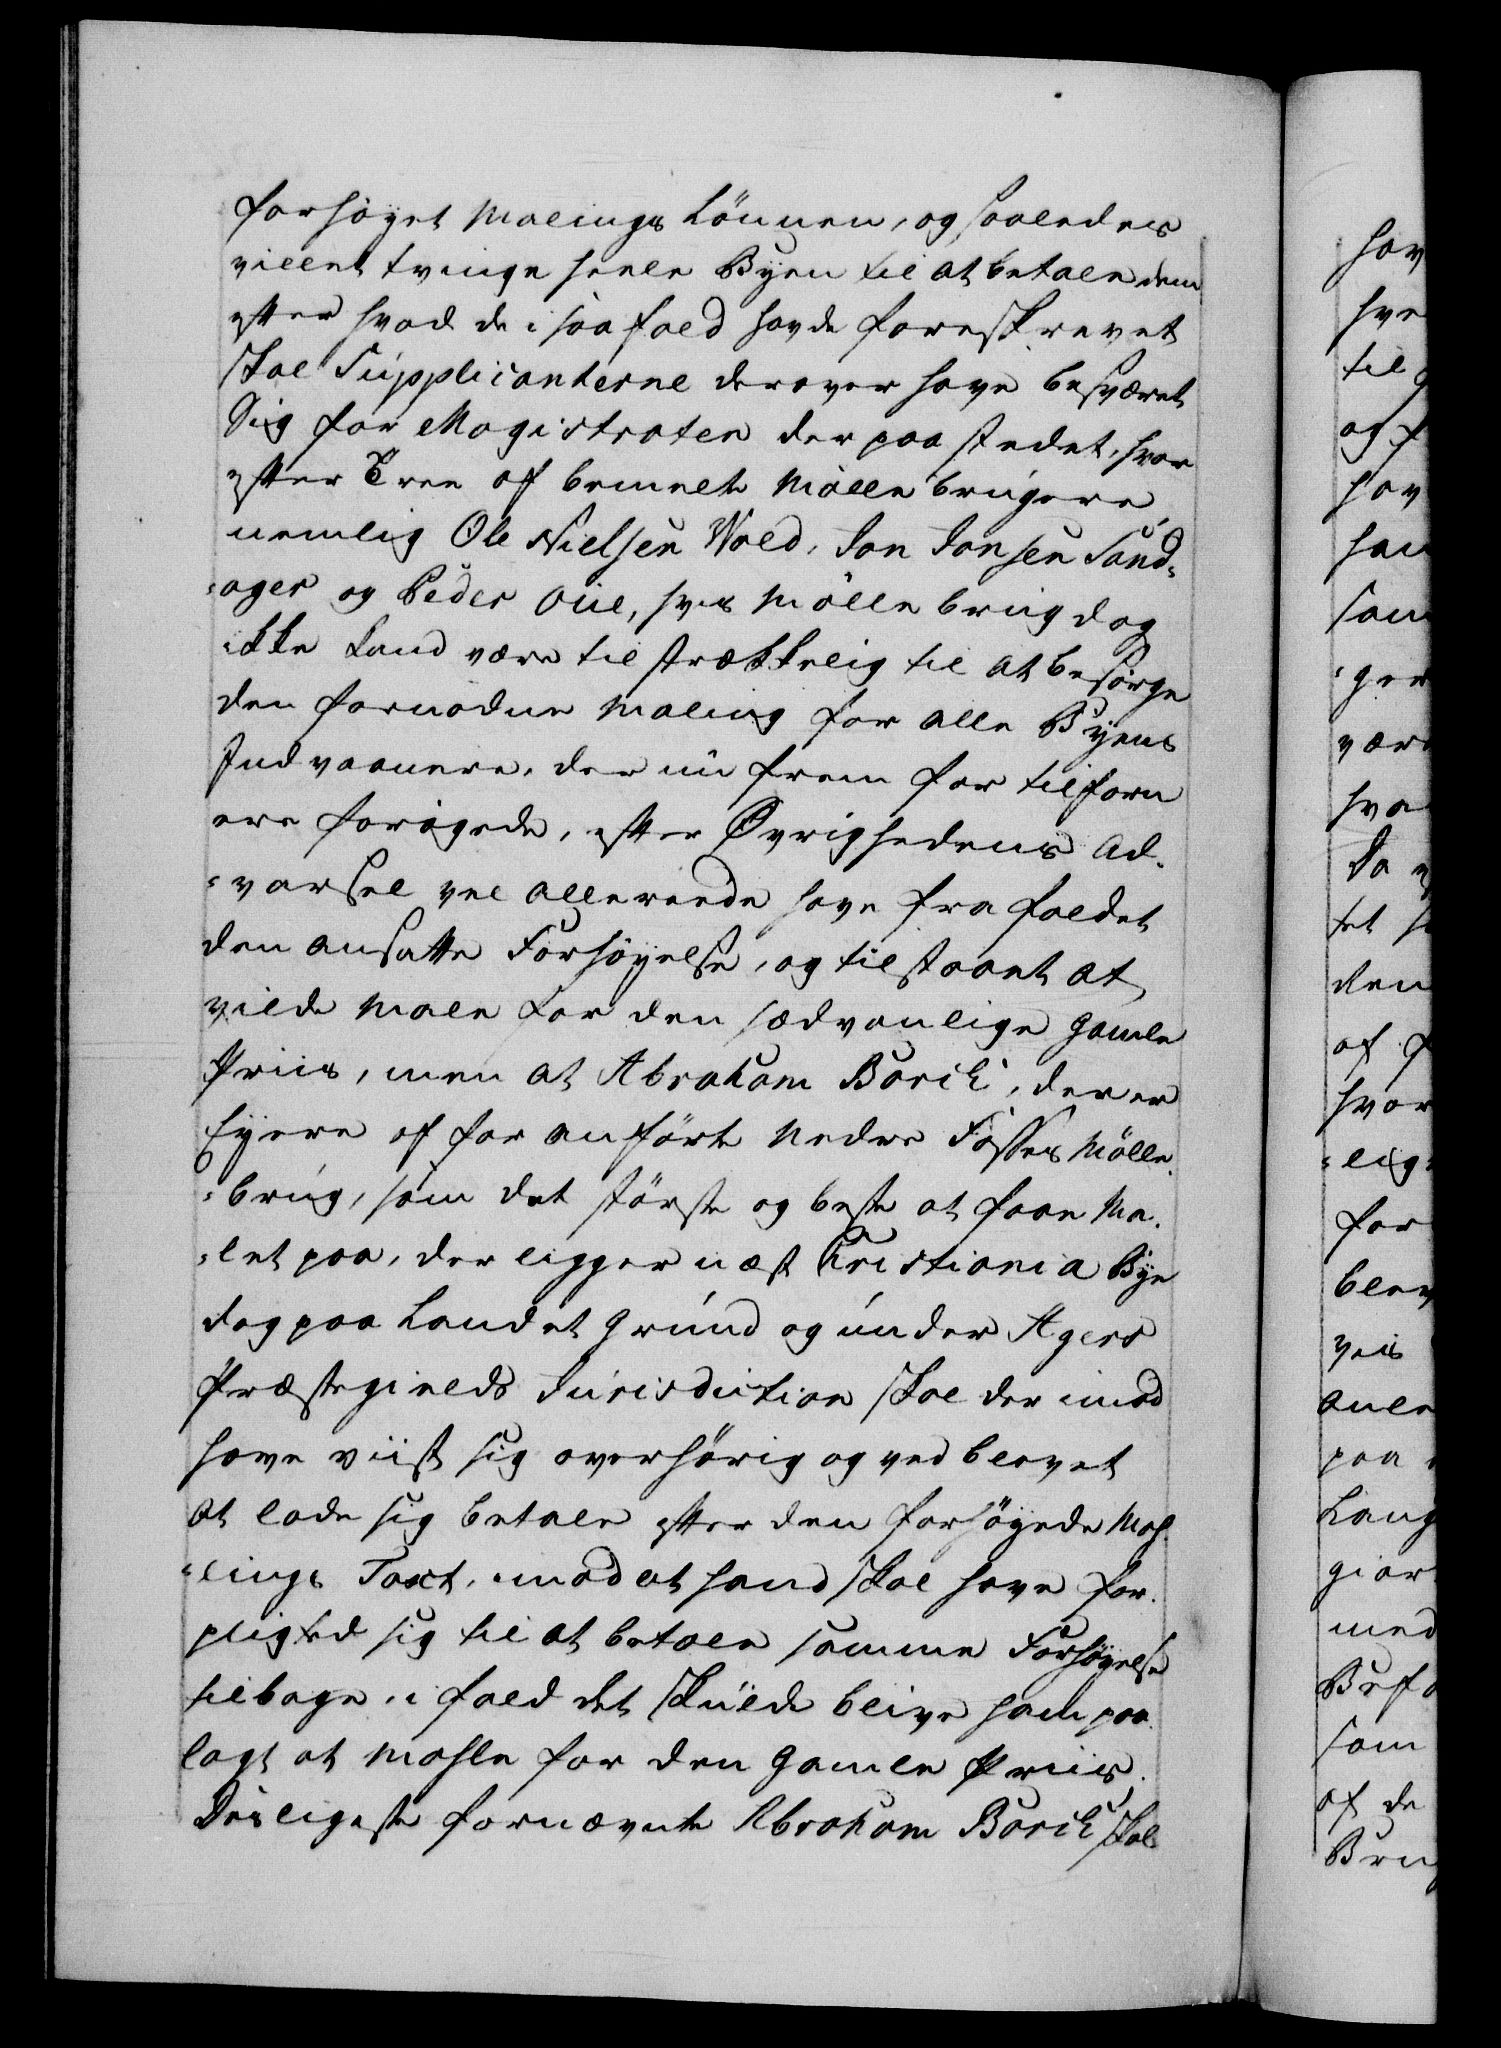 forhöyet Malings Lönnen, og saaledes
villet tvinge heele Byen til at betale dem
efter hvad de i saa fald havde foreskrevet
skal Supplicanterne derover have besværet
Sig for Magistraten der paa stedet, hvor
efter Tree af bemelte Mölle brugere,
nemlig Ole Nielsen Wold, Jon Jonsen Sand-
-ager og Peder Oüe, hvis Mölle brug dog
ikke kand være tilstrækkelig til at besörge
den fornødne Maling for alle Byens
Indvaanere, der nu frem for tilforn
ere forøgede, efter Øvrighedens Ad-
-varsel vel allereede have frafaldet
den ansatte Forhöyelse, og tilstaaet at
vilde Male for den sædvanlige gamle
Priis, men at Abraham Borch, der er
Eyere af for anförte Nedre Fosses Mölle-
-brug, som det störste og beste at faae Ma-
-let paa, der ligger næst Christiania Bye
dog paa Landet Grund og under Agers
Præstegields Jurisdiction skal der imod
have viist sig overhörig og ved blevet
at lade sig betale efter den forhöyede Mah-
-lings Taxt, imod at hand skal have for-
pligted sig til at betale samme Forhöyelse
tilbage, i fald det skulde blive ham paa-
lagt at Mahle for den gamle Priis.
Desligeste fornævnte Abraham Borch skal